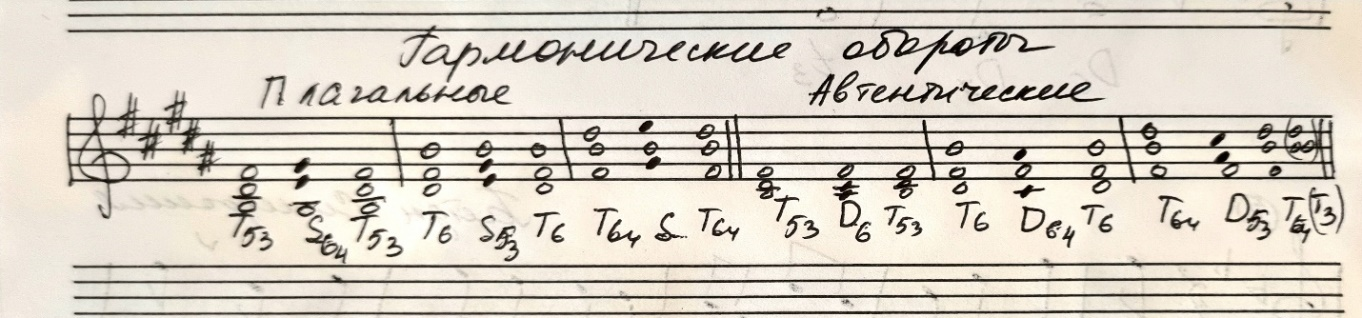 Гармонические обороты
Плагальные Автентические
T53 S64 T53 T6 S53 T6 T64 S T64 T53 D6 T53 T6 D64 T6 T64 D53 T64 (T3)